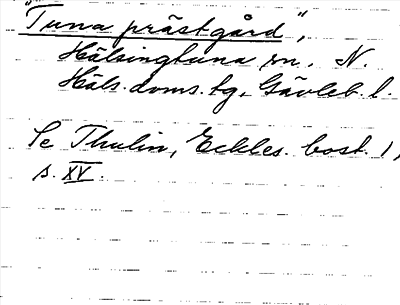 "Tuna prästgård",
Hälsingtuna sn. N.
Häls. doms.tg, Gävleb. l.
Se Thulin, Eckles. bost. 1,
s. XV.